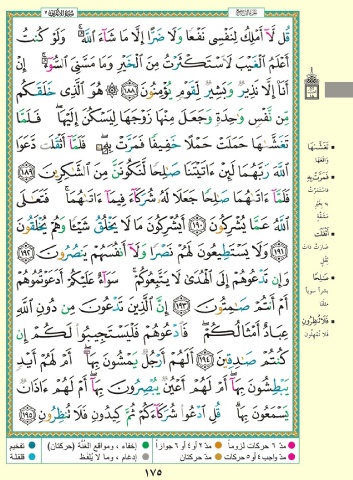 قُل لَّآ أَمْلِكُ لِنَفْسِى نَفْعًا وَلَا ضَرًّا إِلَّا مَا شَآءَ ٱللَّهُ ۚ وَلَوْ كُنتُ
أَعْلَمُ ٱلْغَيْبَ لَٱسْتَكْثَرْتُ مِنَ ٱلْخَيْرِ وَمَا مَسَّنِىَ ٱلسُّوٓءُ ۚ إِنْ
أَنَا۠ إِلَّا نَذِيرٌ وَبَشِيرٌ لِّقَوْمٍ يُؤْمِنُونَ ﴿١٨٨﴾ ۞ هُوَ ٱلَّذِى خَلَقَكُم
مِّن نَّفْسٍ وَٰحِدَةٍ وَجَعَلَ مِنْهَا زَوْجَهَا لِيَسْكُنَ إِلَيْهَا ۖ فَلَمَّا
تَغَشَّىٰهَا حَمَلَتْ حَمْلًا خَفِيفًا فَمَرَّتْ بِهِۦ ۖ فَلَمَّآ أَثْقَلَت دَّعَوَا
ٱللَّهَ رَبَّهُمَا لَئِنْ ءَاتَيْتَنَا صَٰلِحًا لَّنَكُونَنَّ مِنَ ٱلشَّٰكِرِينَ ﴿١٨٩﴾
فَلَمَّآ ءَاتَىٰهُمَا صَٰلِحًا جَعَلَا لَهُۥ شُرَكَآءَ فِيمَآ ءَاتَىٰهُمَا ۚ فَتَعَٰلَى
ٱللَّهُ عَمَّا يُشْرِكُونَ ﴿١٩٠﴾ أَيُشْرِكُونَ مَا لَا يَخْلُقُ شَيْـًٔا وَهُمْ يُخْلَقُونَ
﴿١٩١﴾ وَلَا يَسْتَطِيعُونَ لَهُمْ نَصْرًا وَلَآ أَنفُسَهُمْ يَنصُرُونَ ﴿١٩٢﴾
وَإِن تَدْعُوهُمْ إِلَى ٱلْهُدَىٰ لَا يَتَّبِعُوكُمْ ۚ سَوَآءٌ عَلَيْكُمْ أَدَعَوْتُمُوهُمْ
أَمْ أَنتُمْ صَٰمِتُونَ ﴿١٩٣﴾ إِنَّ ٱلَّذِينَ تَدْعُونَ مِن دُونِ ٱللَّهِ
عِبَادٌ أَمْثَالُكُمْ ۖ فَٱدْعُوهُمْ فَلْيَسْتَجِيبُوا۟ لَكُمْ إِن
كُنتُمْ صَٰدِقِينَ ﴿١٩٤﴾ أَلَهُمْ أَرْجُلٌ يَمْشُونَ بِهَآ ۖ أَمْ لَهُمْ أَيْدٍ
يَبْطِشُونَ بِهَآ ۖ أَمْ لَهُمْ أَعْيُنٌ يُبْصِرُونَ بِهَآ ۖ أَمْ لَهُمْ ءَاذَانٌ
يَسْمَعُونَ بِهَا ۗ قُلِ ٱدْعُوا۟ شُرَكَآءَكُمْ ثُمَّ كِيدُونِ فَلَا تُنظِرُونِ ﴿١٩٥﴾
تَغَشَّىٰهَا
وَاقَعَهَا
فَمَرَّتْ بِهِ
فَاسْتَمَرَّتْ
بِهِ بِغَيْرِ
مَشَقَّةٍ
أَثْقَلَت
صَارَتْ ذَاتَ
ثِقَلٍ
صَٰلِحًا
بَشَرًا سَوِيًّا
فَلَا تُنظِرُونِ
فَلَا تُمْهِلُونِ
مدّ ٦ حركات لزوماً مدّ ٢ أو ٤ أو ٦ جوازاً إخفاء، ومواقع الغنّة (حركتان) تفخيم
مدّ واجب ٤ أو ٥ حركات مدّ حركتان إدغام، وما لا يُلفظ قلقلة
١٧٥